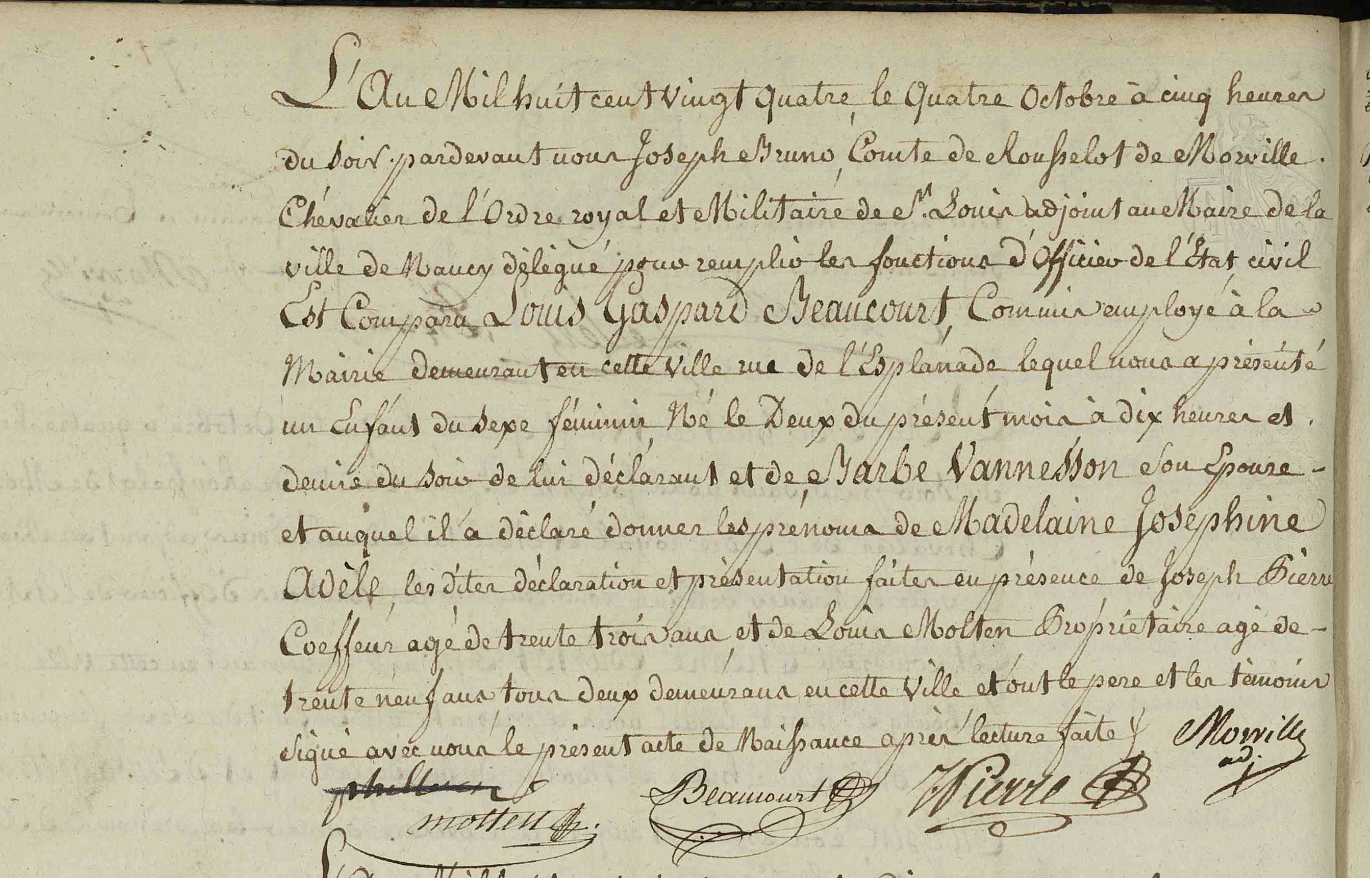 L'An Mil huit cent vingt quatre, le Quatre Octobre à cinq heures
du soir, pardevant nous Joseph Bruno, Comte de Rousselot de Morville.
Chévalier de l'Ordre royal et Militaire de St. Louis adjoint au Maire de la
ville de Nancy délégué pour remplir les fonctions d'Officier de l'État civil
Est Comparu Louis Gaspard Beaucourt, Commis employé à la
Mairie demeurant en cette ville rue de l'Esplanade lequel nous a présenté
un Enfant du sexe féminin, Né le Deux du présent mois à dix heures et.
demie du soir de lui déclarant et de Barbe Vannesson son Epouse -
et auquel il a déclaré donner les prénoms de Madelaine Josephine
Adèle, les dites déclaration et présentation faites en présence de Joseph Pierre
Coeffeur agé de trente trois ans, et de Louis Molten Propriétaire agé de -
trente neuf ans tous deux demeurans en cette Ville et ont le pere et les témoins
signé avec nous le présent acte de Naissance après lecture faite
Morville
adj.
Beaucourt
JPierre
molten
L'An Mil